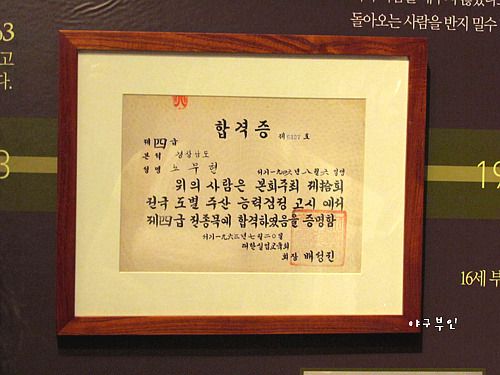 63
고
다.
3
돌아오는 사람을 반지 밀수
합격증
제 호
제四급
본적 경상남도
성명 노무현 서기一九四六년八월六일생
위의 사람은 본회주최 제拾회
전국 도별 주산 능력검정 고시에서
제四급 전종목에 합격하였음을 증명함
서기一九六三년七월二0일
대한실업교육회
회장 배성진
19
16세 부
야구부인